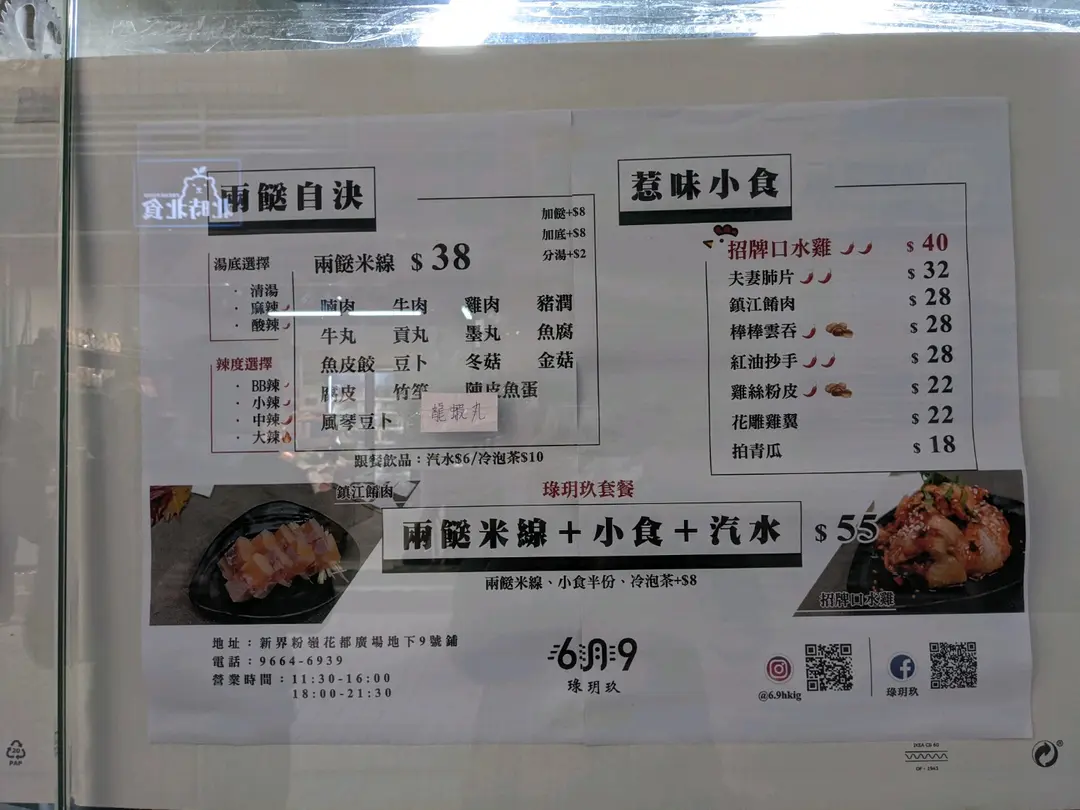 兩餸自決
加餸+$8
加底+$8
分湯+$2
兩餸米線 $38
湯底選擇
· 清湯
· 麻辣
· 酸辣
辣度選擇
· BB辣
· 小辣
· 中辣
· 大辣
腩肉 牛肉 雞肉 豬潤
牛丸 貢丸 墨丸 魚腐
魚皮餃 豆卜 冬菇 金菇
腐皮 竹笙 陳皮魚蛋
風琴豆卜 龍蝦丸
跟餐飲品：汽水$6/冷泡茶$10
惹味小食
招牌口水雞 $40
夫妻肺片 $32
鎮江餚肉 $28
棒棒雲吞 $28
紅油抄手 $28
雞絲粉皮 $22
花雕雞翼 $22
拍青瓜 $18
鎮江餚肉
琭玥玖套餐
兩餸米線＋小食＋汽水 $55
兩餸米線、小食半份、冷泡茶+$8
招牌口水雞
地址：新界粉嶺花都廣場地下9號鋪
電話：9664-6939
營業時間：11:30-16:00
18:00-21:30
6月9
琭玥玖
@6.9hkig
琭玥玖
北時北食
20
PAP
IKEA CD 60